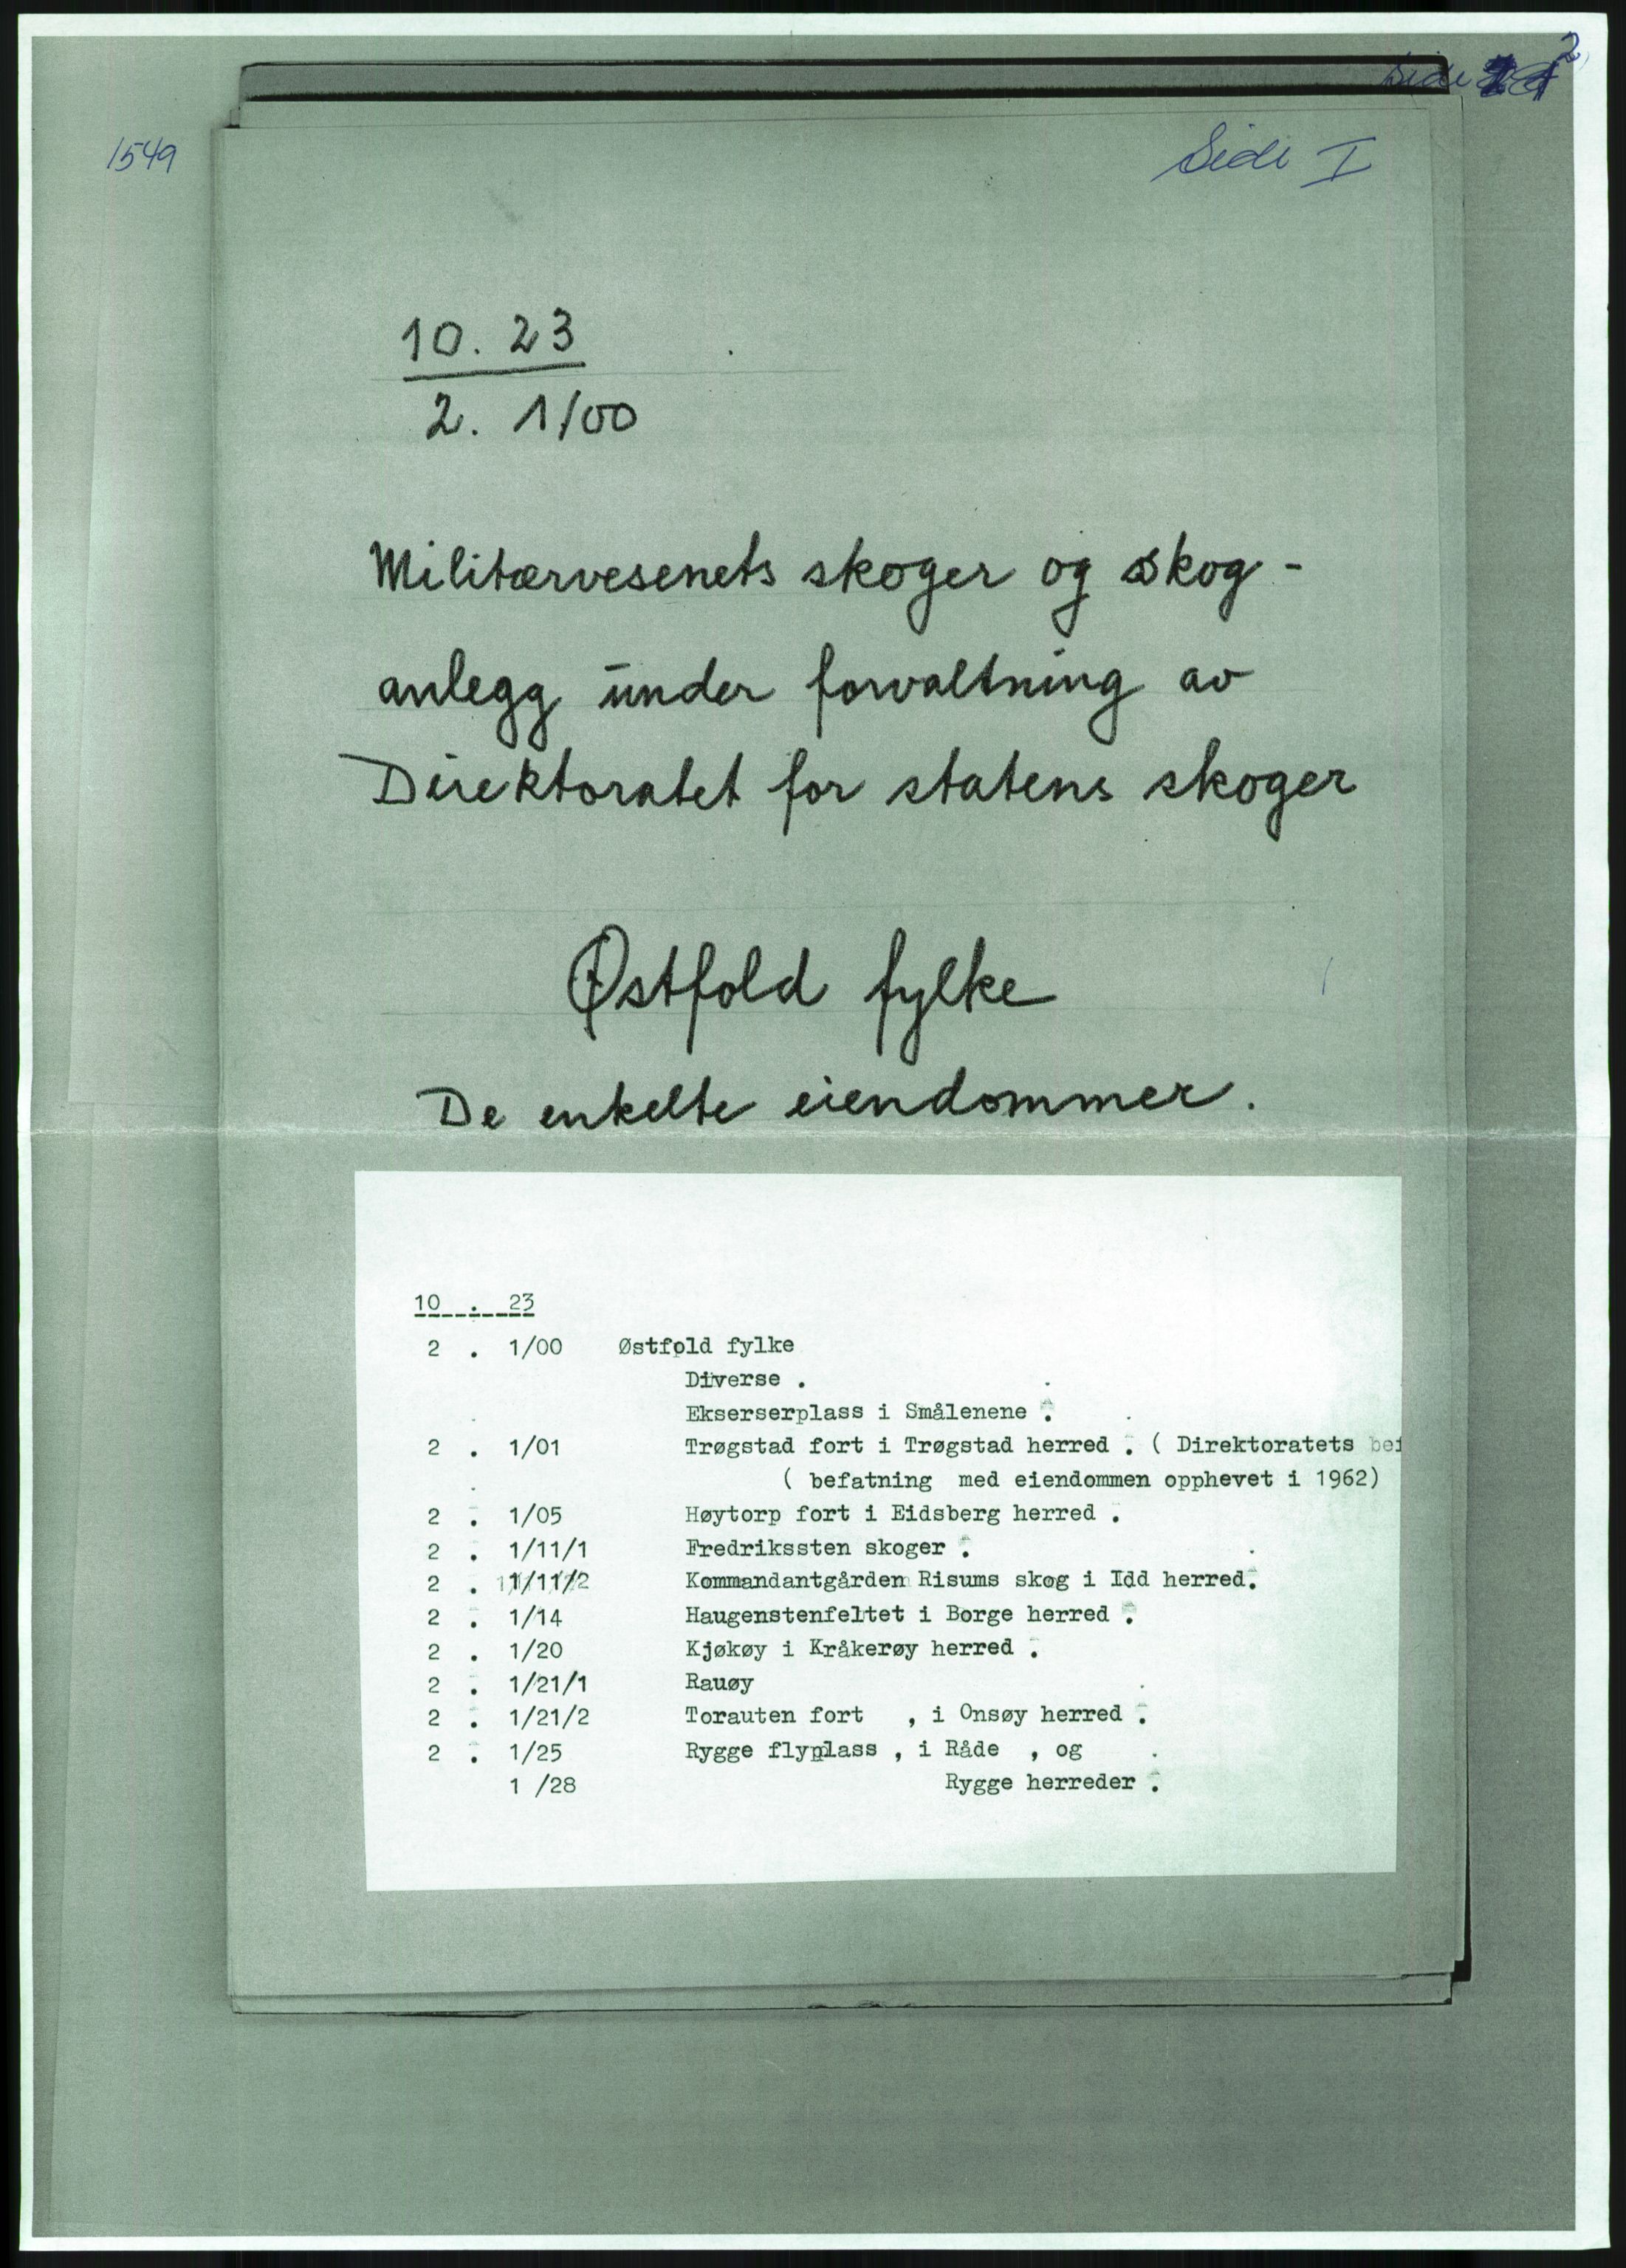 Side 2
1549
Side I
10. 23
2. 1/00
Militærvesenets skoger og skog-
anlegg under forvaltning av
Direktoratet for statens skoger
Østfold fylke
De enkelte eiendommer.
10 . 23
2 . 1/00 Østfold fylke
Diverse .
Ekserserplass i Smålenene .
2 . 1/01 Trøgstad fort i Trøgstad herred . ( Direktoratets
( befatning med eiendommen opphevet i 1962)
2 . 1/05 Høytorp fort i Eidsberg herred .
2 . 1/11/1 Fredrikssten skoger .
2 . 1/11/2 Kommandantgården Risums skog i Idd herred.
2 . 1/14 Haugenstenfeltet i Borge herred .
2 . 1/20 Kjøkøy i Kråkerøy herred .
2 . 1/21/1 Rauøy
2 . 1/21/2 Torauten fort , i Onsøy herred .
2 . 1/25 Rygge flyplass , i Råde , og
1 /28 Rygge herreder .